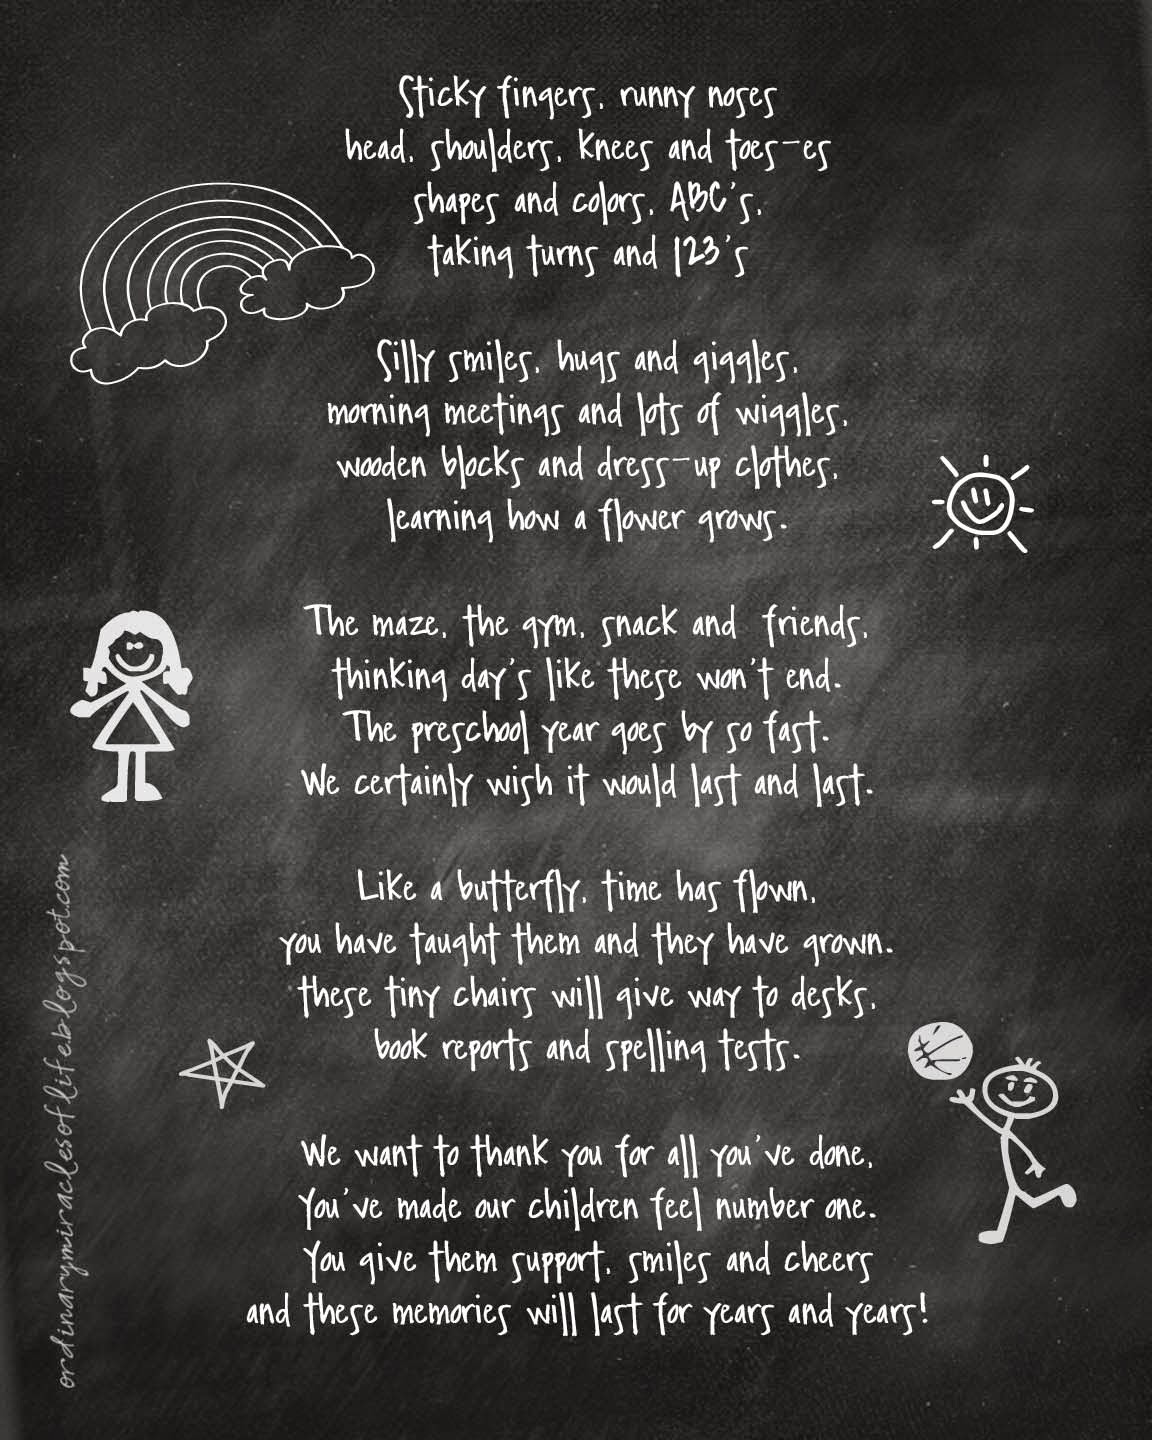 Sticky fingers, runny noses
head, shoulders, knees and toes-es
shapes and colors, ABC's,
taking turns and 123's
Silly smiles, hugs and giggles,
morning meetings and lots of wiggles,
wooden blocks and dress-up clothes,
learning how a flower grows.
The maze, the gym, snack and friends,
thinking day's like these won't end.
The preschool year goes by so fast.
We certainly wish it would last and last.
Like a butterfly, time has flown,
you have taught them and they have grown.
these tiny chairs will give way to desks,
book reports and spelling tests.
We want to thank you for all you've done,
You've made our children feel number one.
You give them support, smiles and cheers
and these memories will last for years and years!
ordinarymiraclesoflife.blogspot.com